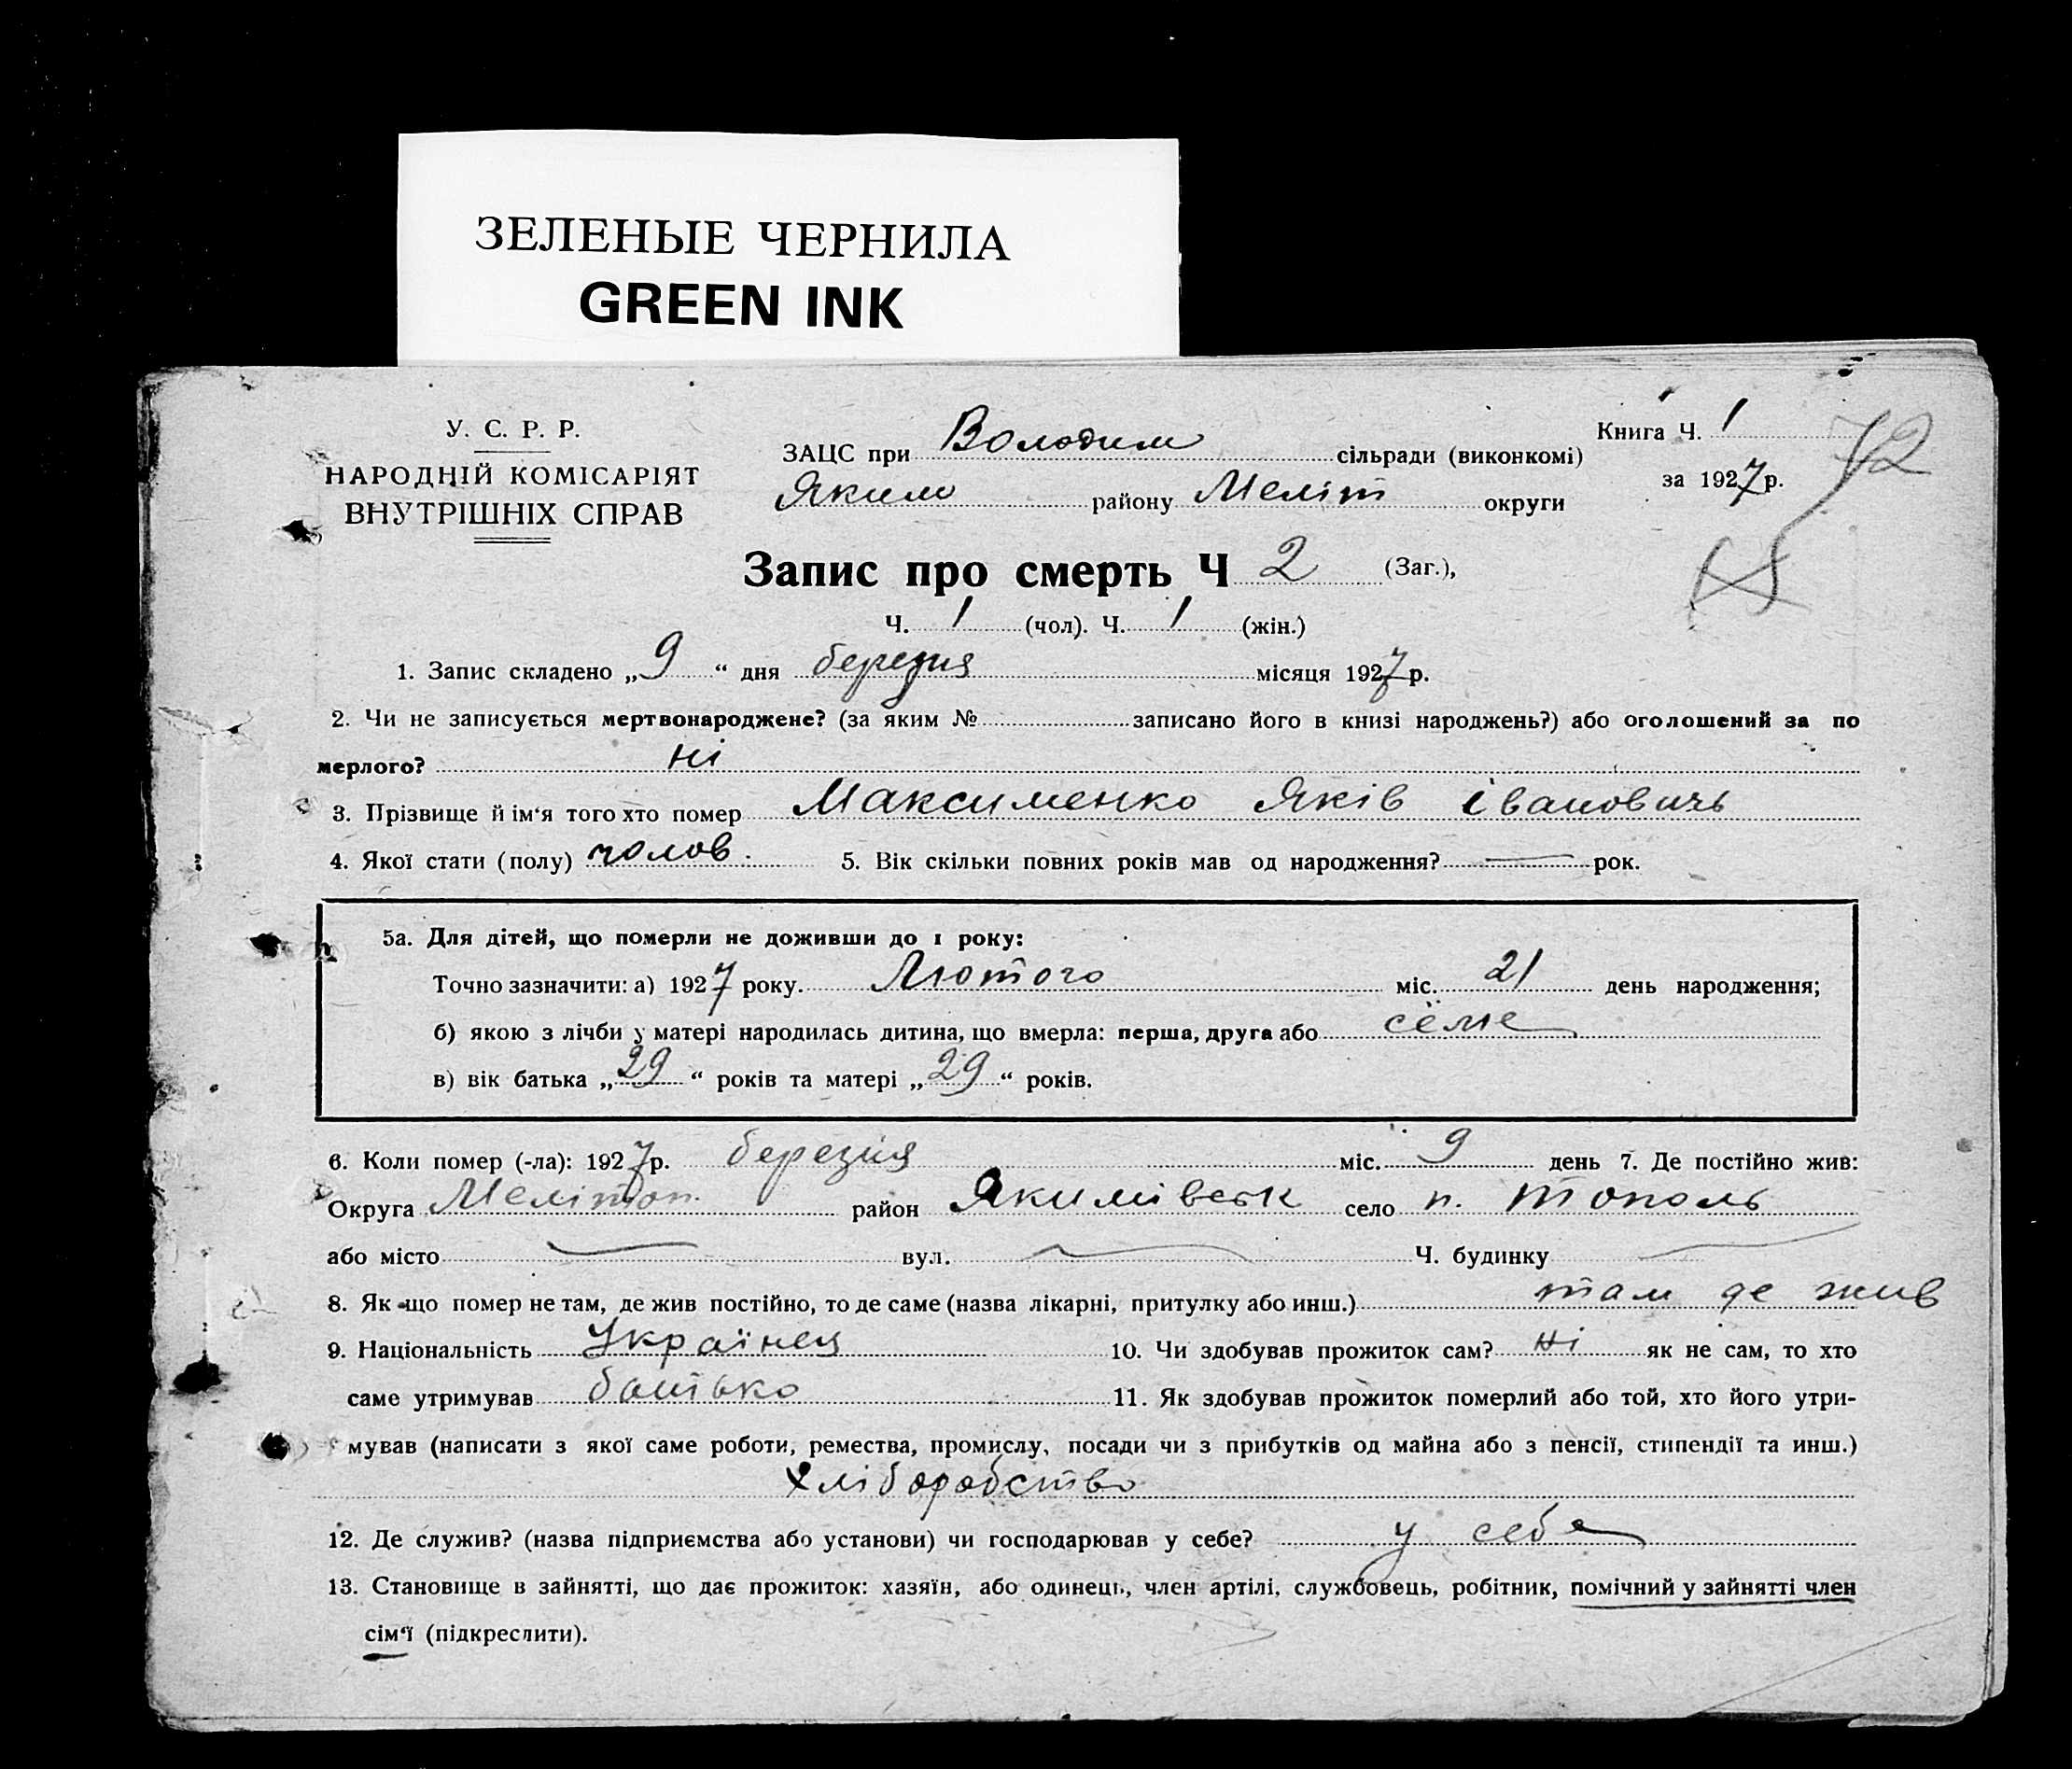 ЗЕЛЕНЫЕ ЧЕРНИЛА
GREEN INK
У. С. Р. Р.
НАРОДНІЙ КОМІСАРІЯТ
ВНУТРІШНІХ СПРАВ
ЗАЦС при Володим сільради (виконкомі)
Яким району Меліт округи
Книга Ч. 1
за 1927 р.
Запис про смерть Ч 2 (Заг.),
Ч. 1 (чол). Ч. 1 (жін.)
1. Запис складено „9“ дня березня місяця 1927 р.
2. Чи не записується мертвонароджене? (за яким № записано його в книзі народжень?) або оголошений за по
мерлого? ні
3. Прізвище й ім'я того хто помер Максименко Яків Івановичь
4. Якої стати (полу) чолов. 5. Вік скільки повних років мав од народження? — рок.
5а. Для дітей, що померли не доживши до 1 року:
Точно зазначити: а) 1927 року. Лютого міс. 21 день народження;
б) якою з лічби у матері народилась дитина, що вмерла: перша, друга або
в) вік батька „29“ років та матері „29“ років.
6. Коли помер (-ла): 1927 р. березня міс. 9 день 7. Де постійно жив:
Округа Мелітоп. район Якимівськ село п. Тополь
або місто — вул. — Ч. будинку —
8. Як що помер не там, де жив постійно, то де саме (назва лікарні, притулку або инш.) там де жив
9. Національність Українец 10. Чи здобував прожиток сам? ні як не сам, то хто
саме утримував батько 11. Як здобував прожиток померлий або той, хто його утри-
мував (написати з якої саме роботи, ремества, промислу, посади чи з прибутків од майна або з пенсії, стипендії та инш.)
хліборобство
12. Де служив? (назва підприємства або установи) чи господарював у себе? у себе
13. Становище в зайнятті, що дає прожиток: хазяїн, або одинець, член артілі, службовець, робітник, помічний у зайнятті член
сім'ї (підкреслити).